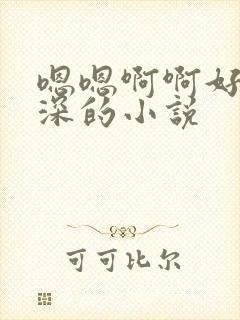 嗯嗯啊啊好
深的小说
可可比尔